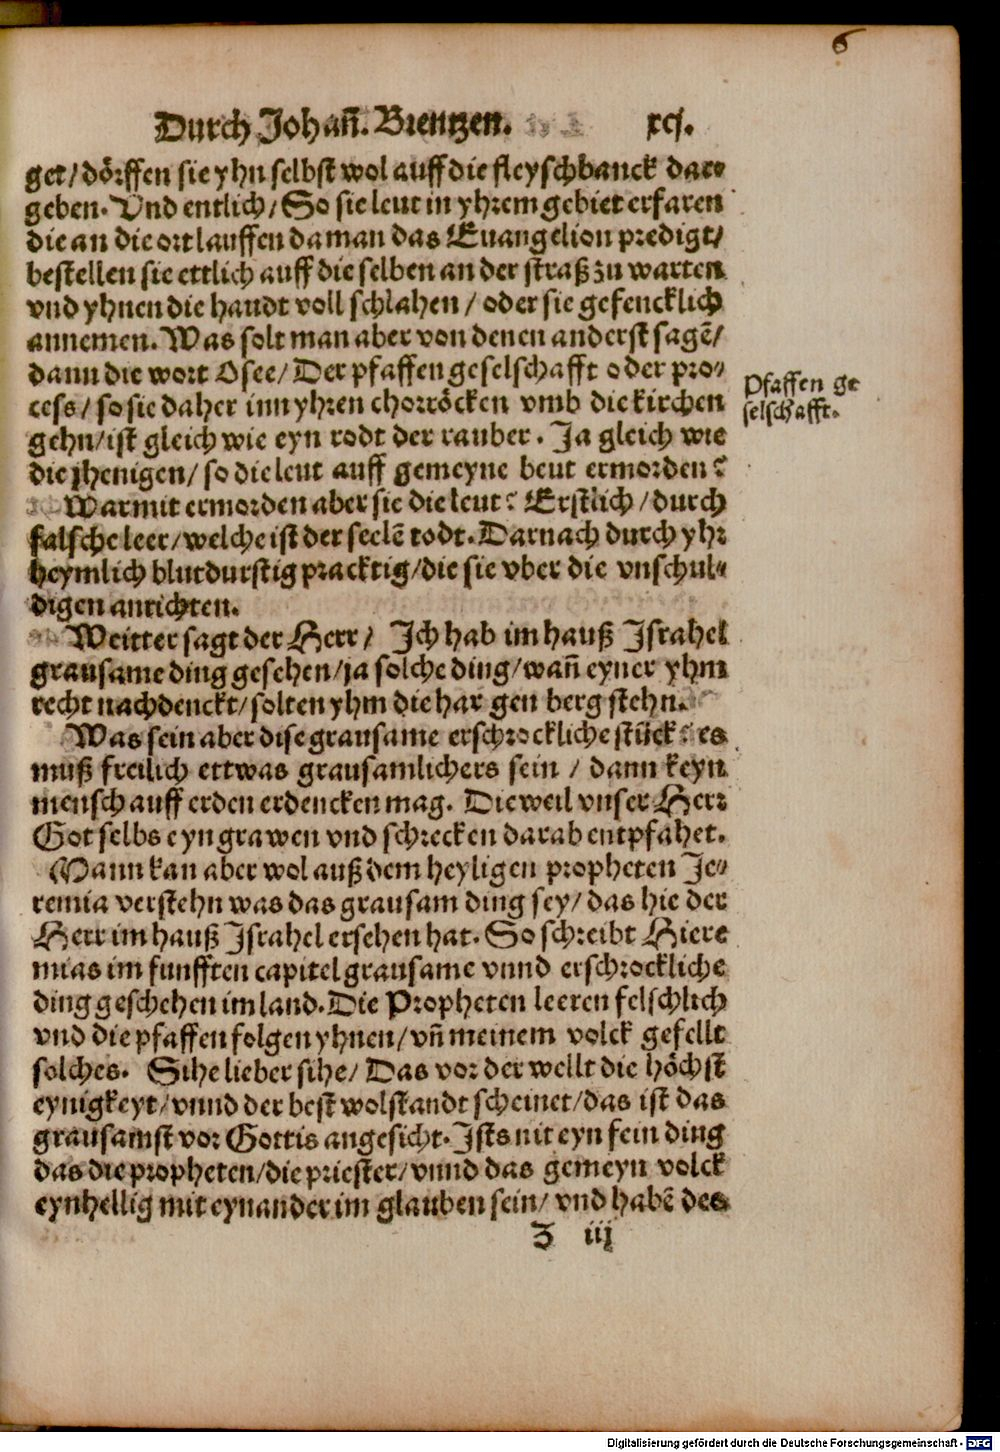 6
Durch Johañ. Brentzen. xcj.
get/dörffen sie yhn selbst wol auff die fleyschbanck dar⸗
geben. Vnd entlich/ So sie leut in yhrem gebiet erfaren
die an die ort lauffen da man das Euangelion predigt/
bestellen sie ettlich auff die selben an der straß zu warten
vnd yhnen die handt voll schlahen / oder sie gefencklich
annemen. Was solt man aber von denen anderst sagẽ/
dann die wort Osee/ Der pfaffen geselschafft oder pro⸗
cess/ so sie daher inn yhren chorröcken vmb die kirchen
gehn/ist gleich wie eyn rodt der rauber. Ja gleich wie
die jhenigen/ so die leut auff gemeyne beut ermorden?
Pfaffen ge
selschafft.
Warmit ermorden aber sie die leut? Erstlich/durch
falsche leer/welche ist der seelẽ todt. Darnach durch yhr
heymlich blutdurstig pracktig/die sie vber die vnschul⸗
digen anrichten.
Weitter sagt der Herr/ Ich hab im hauß Israhel
grausame ding gesehen/ja solche ding/wañ eyner yhm
recht nachdenckt/solten yhm die har gen berg stehn.
Was sein aber dise grausame erschrockliche stück? es
muß freilich ettwas grausamlichers sein / dann keyn
mensch auff erden erdencken mag. Die weil vnser Herr
Got selbs eyn grawen vnd schrecken darab entpfahet.
Mann kan aber wol auß dem heyligen propheten Je⸗
remia verstehn was das grausam ding sey/ das hie der
Herr im hauß Israhel ersehen hat. So schreibt Hiere
mias im funfften capitel grausame vnnd erschrockliche
ding geschehen im land. Die Propheten leeren felschlich
vnd die pfaffen folgen yhnen/vñ meinem volck gefellt
solches. Sihe lieber sihe/ Das vor der wellt die höchst
eynigkeyt/vnnd der best wolstandt scheinet/das ist das
grausamst vor Gottis angesicht. Ists nit eyn fein ding
das die propheten/die priester/vnnd das gemeyn volck
eynhellig mit eynander im glauben sein/ vnd habẽ des
Z iij
Digitalisierung gefördert durch die Deutsche Forschungsgemeinschaft - DFG